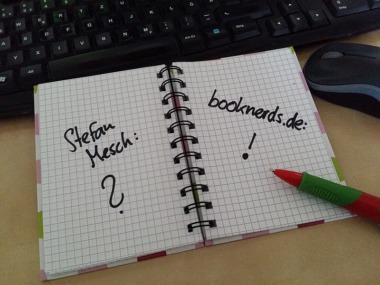 Stefan
Mesch:
?
booknerds.de:
!